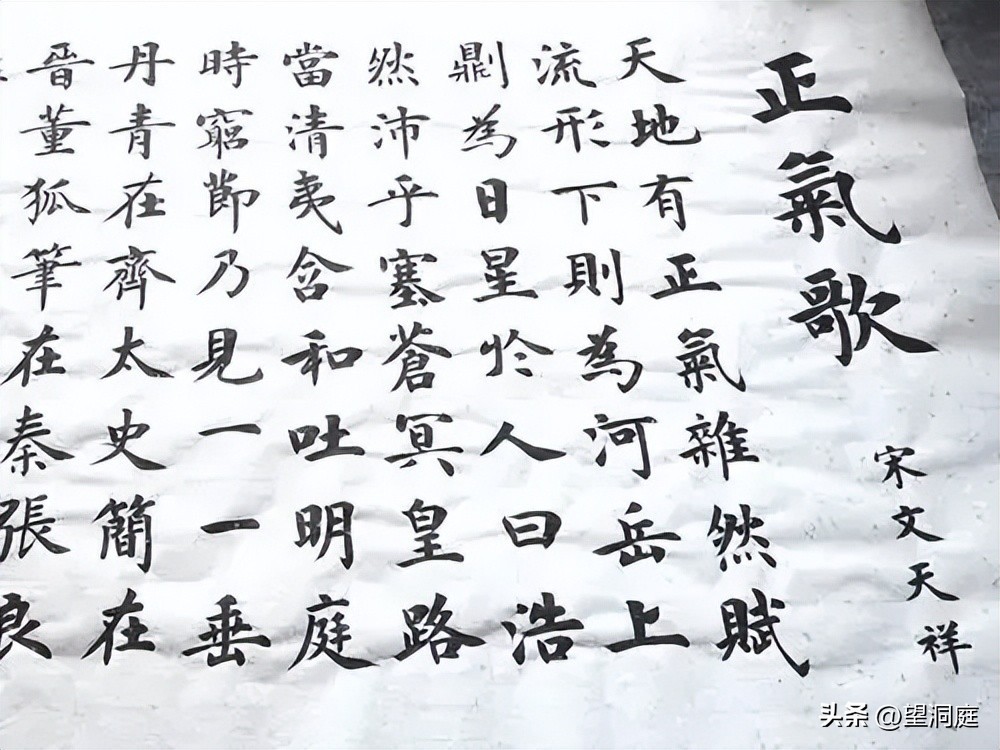 正氣歌
宋文天祥
天地有正氣雜然賦
流形下則為河岳上
則為日星於人曰浩
然沛乎塞蒼冥皇路
當清夷含和吐明庭
時窮節乃見一一垂
丹青在齊太史簡在
晉董狐筆在秦張良
头条 @望洞庭